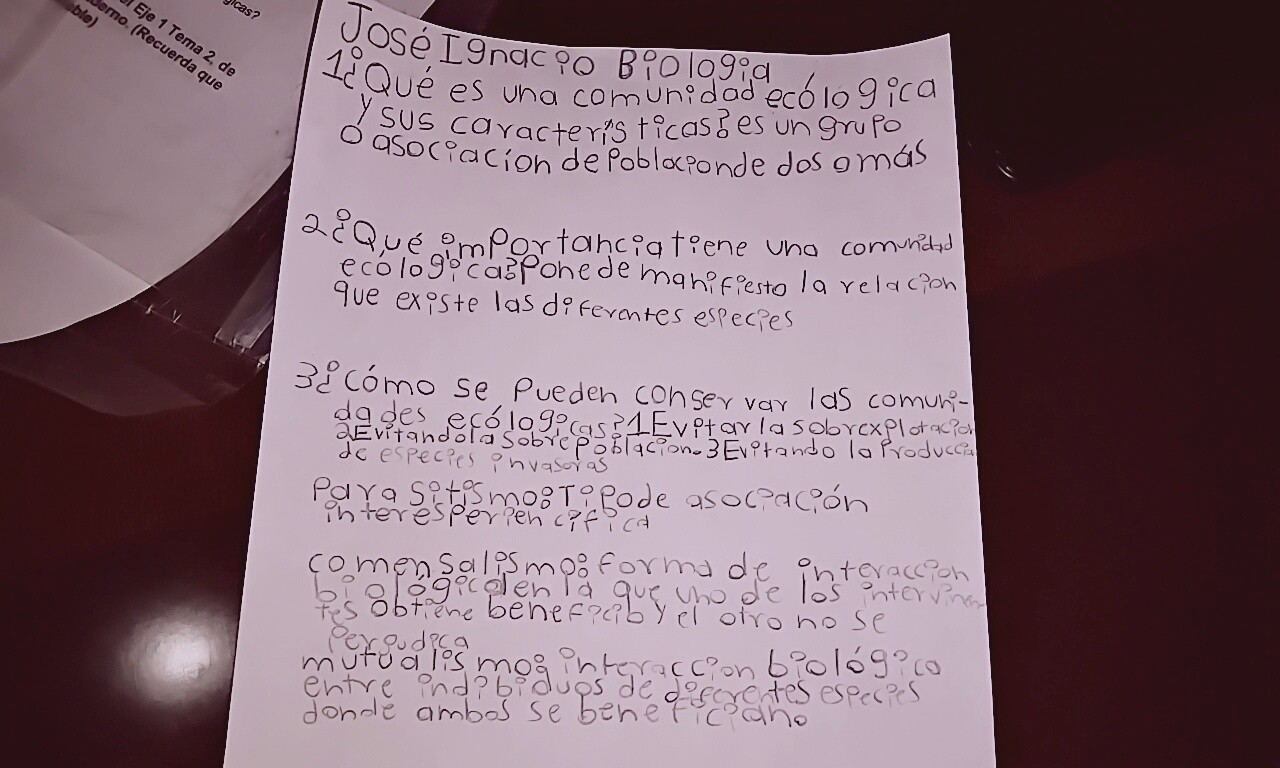 gicas?
l Eje 1 Tema 2, de
derno. (Recuerda que
ble)
José Ignacio Biologia
1¿Qué es una comunidad ecólogica
y sus caracteristicas? es un grupo
o asociacíon de Poblacionde dos o más
2¿Qué importancia tiene una comunidad
ecólogica? Pone de manifiesto la relacion
que existe las diferentes especies
3¿Cómo se Pueden conservar las comuni-
dades ecólogicas? 1 Evitar la sobrexplotacion
2 Evitando la sobrepoblacion. 3 Evitando la Produccio
de especies invasoras
Parasitismo: Tipo de asociación
interesperiencifica
comensalismo: forma de interaccion
biológica en la que uno de los intervinen-
tes obtiene beneficio y el otro no se
perjudica
mutualismo: interaccion biológica
entre indibiduos de diferentes especies
donde ambos se benefician.